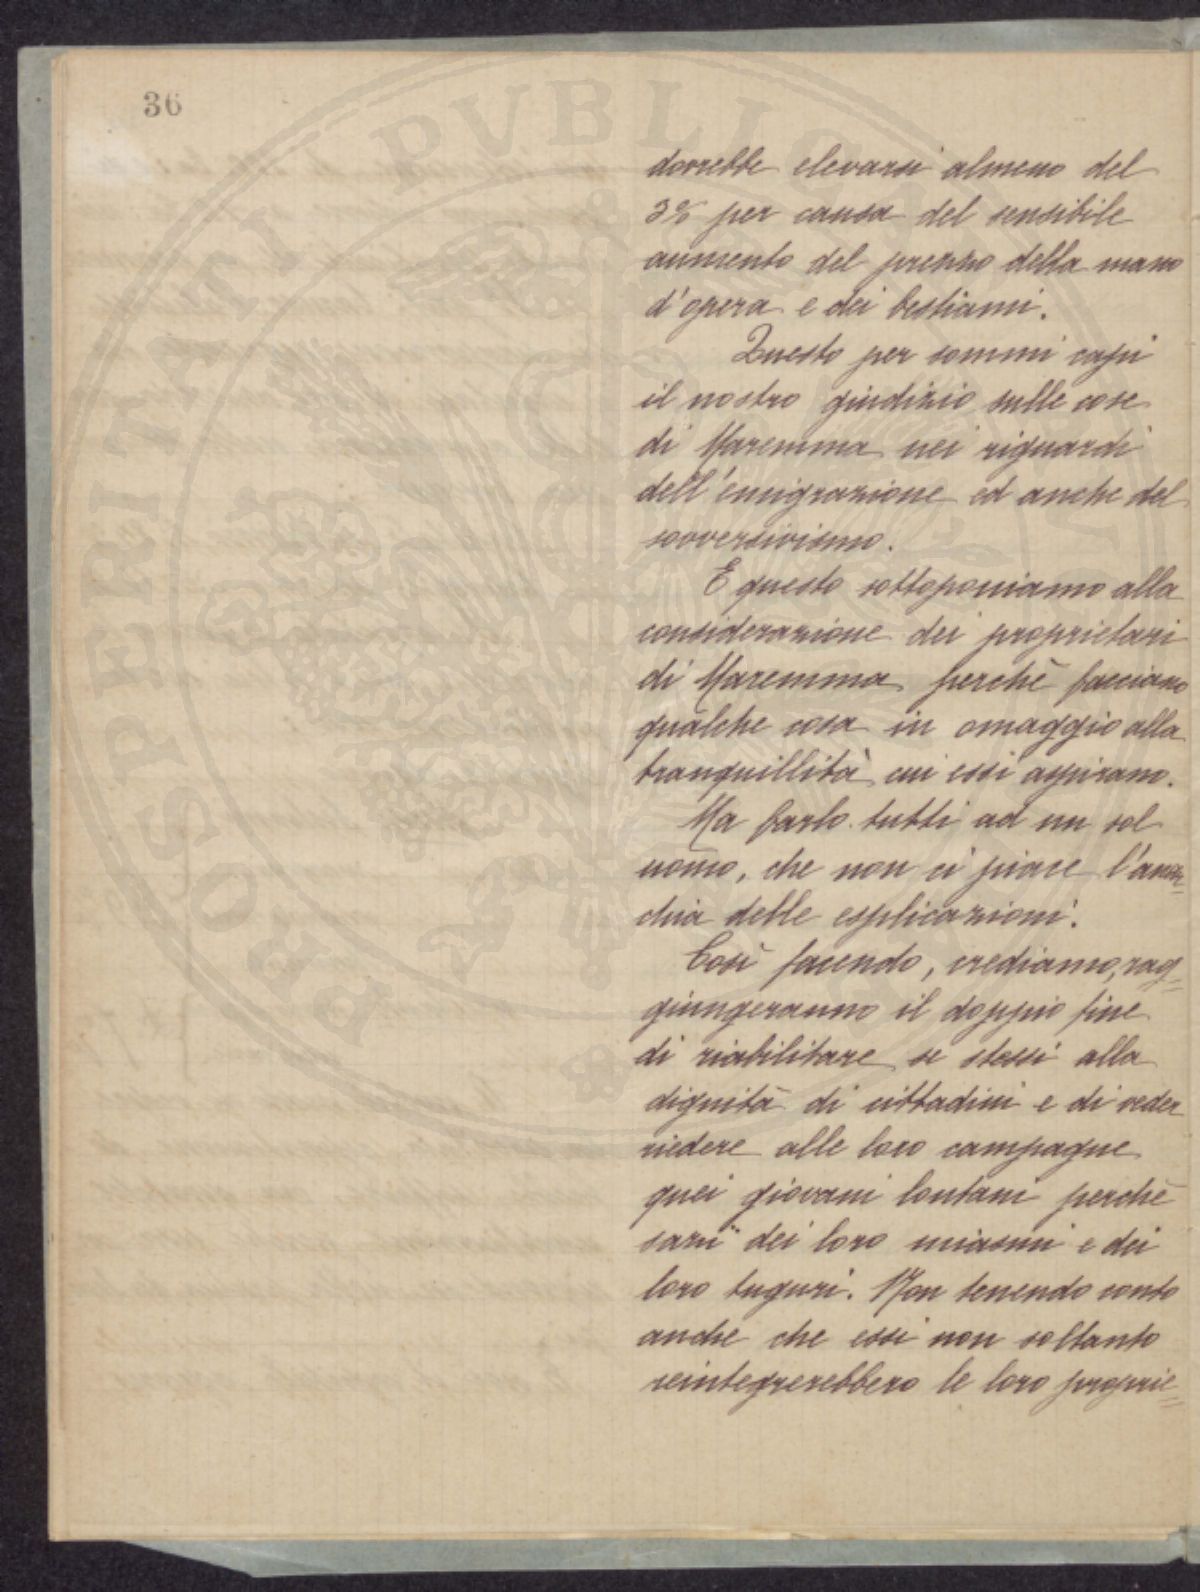 36
PROSPERITATI PVBLICAE
dovrebbe elevarsi almeno del
3% per causa del sensibile
aumento del prezzo della mano
d'opera e dei bestiami.
Questo per sommi capi
il nostro giudizio sulle cose
di Maremma nei riguardi
dell'emigrazione ed anche del
sovversivismo.
E questo sottoponiamo alla
considerazione dei proprietari
di Maremma perchè facciano
qualche cosa in omaggio alla
tranquillità cui essi aspirano.
Ma farlo tutti ad un sol
uomo, che non ci piace l'anar=
chia delle esplicazioni.
Così facendo, crediamo, rag=
giungeranno il doppio fine
di riabilitare se stessi alla
dignità di cittadini e di veder
riedere alle loro campagne
quei giovani lontani perchè
sazii dei loro miasmi e dei
loro tuguri. Non tenendo conto
anche che essi non soltanto
reintegrerebbero le loro proprie=